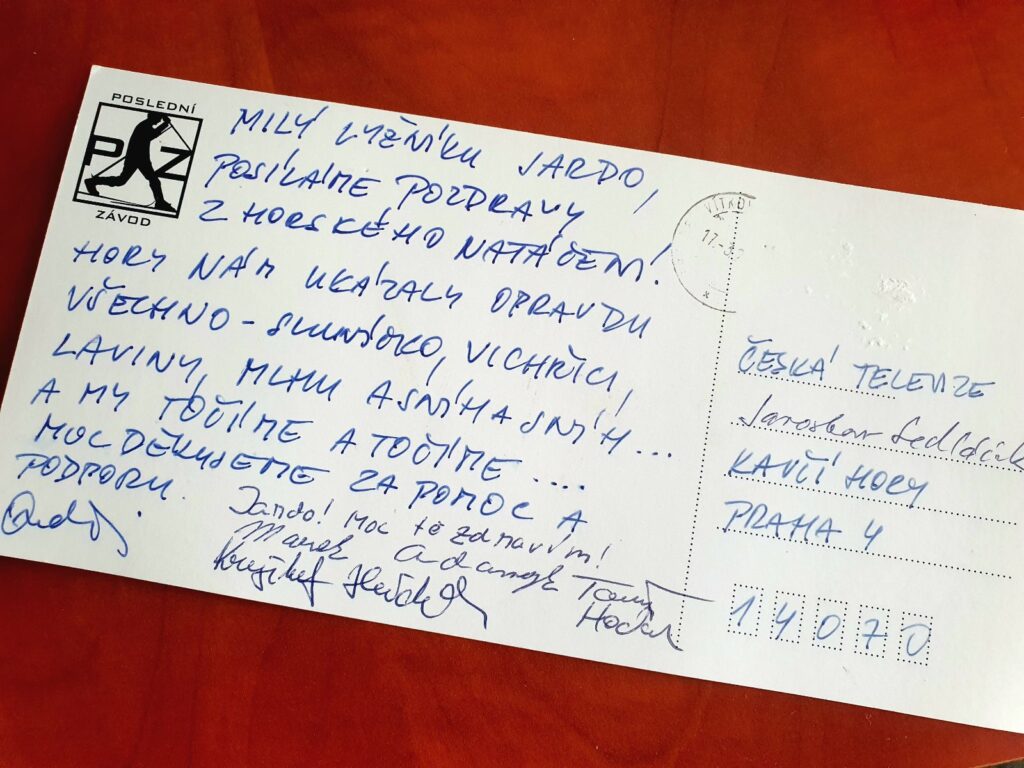 POSLEDNÍ
PZ
ZÁVOD
MILÝ LYŽNÍKU JARDO,
POSÍLÁME POZDRAVY
Z HORSKÉHO NATÁČENÍ!
HORY NÁM UKÁZALY OPRAVDU
VŠECHNO - SLUNÍČKO, VICHŘICI,
LAVINY, MLHU A SNÍH A SNÍH...
A MY TOČÍME A TOČÍME ....
MOC DĚKUJEME ZA POMOC A
PODPORU.
Jardo! Moc tě zdravím!
Marek Adamczyk
Kryštof Hádek
Tomáš
Hodan
VÍTKO
17.-
ČESKÁ TELEVIZE
Jaroslav Sedláček
KAVČÍ HORY
PRAHA 4
14070